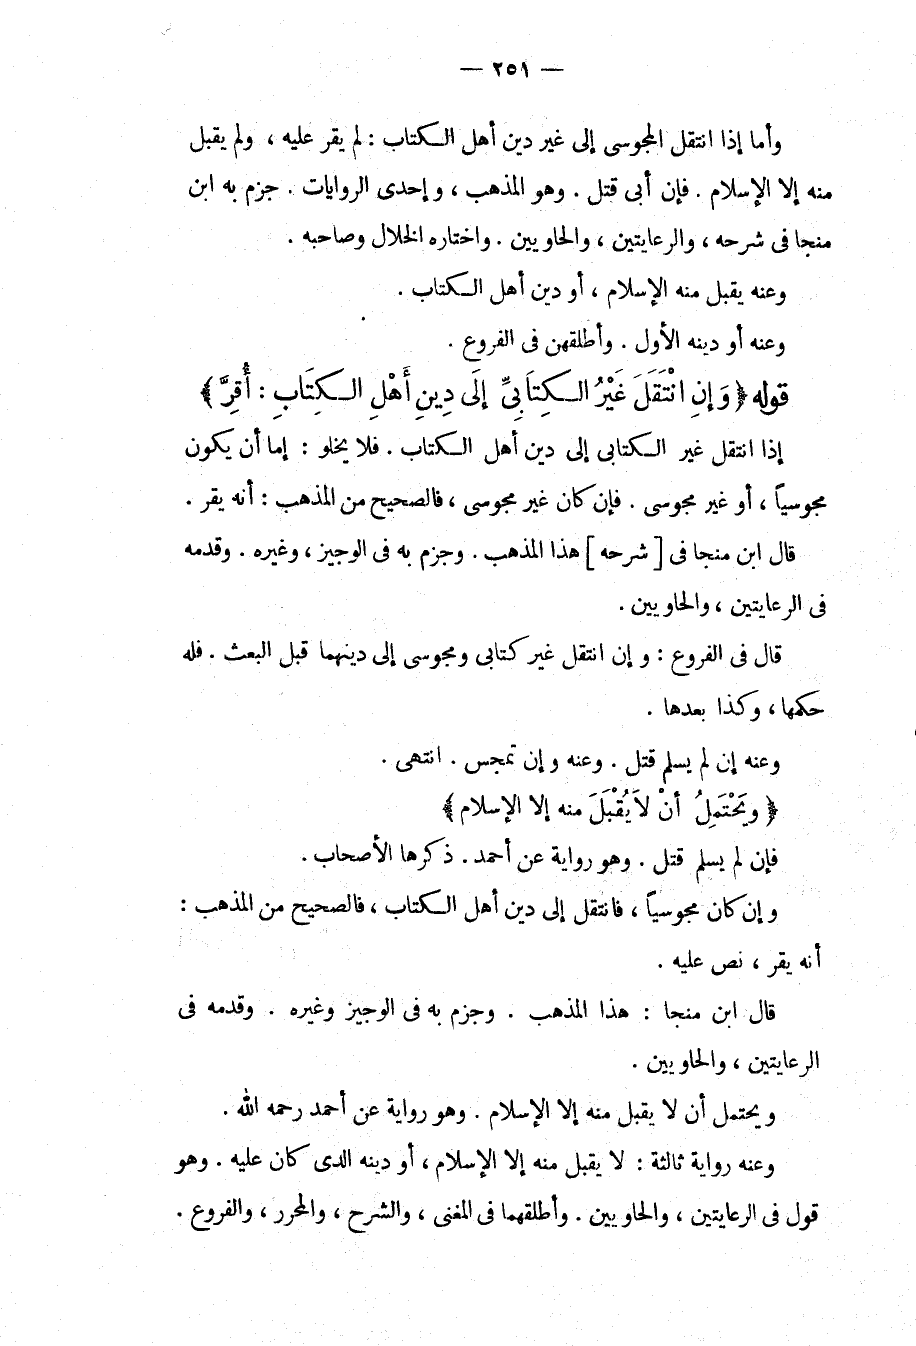 — ٢٥١ —
وأما إذا انتقل المجوسى إلى غير دين أهل الكتاب : لم يقر عليه ، ولم يقبل
منه إلا الإسلام . فإن أبى قتل . وهو المذهب ، وإحدى الروايات . جزم به ابن
منجا فى شرحه ، والرعايتين ، والحاويين . واختاره الخلال وصاحبه .
وعنه يقبل منه الإسلام ، أو دين أهل الكتاب .
وعنه أو دينه الأول . وأطلقهن فى الفروع .
قوله ﴿ وَإِنِ انْتَقَلَ غَيْرُ الكِتَابِىِّ إِلَى دِينِ أَهْلِ الكِتَابِ : أُقِرَّ ﴾
إذا انتقل غير الكتابى إلى دين أهل الكتاب . فلا يخلو : إما أن يكون
مجوسياً ، أو غير مجوسى . فإن كان غير مجوسى ، فالصحيح من المذهب : أنه يقر .
قال ابن منجا فى [ شرحه ] هذا المذهب . وجزم به فى الوجيز ، وغيره . وقدمه
فى الرعايتين ، والحاويين .
قال فى الفروع : وإن انتقل غير كتابى ومجوسى إلى دينهما قبل البعث . فله
حكمها ، وكذا بعدها .
وعنه إن لم يسلم قتل . وعنه وإن تمجس . انتهى .
﴿ ويَحْتَمِلُ أنْ لاَ يُقْبَلَ منه إلا الإسلام ﴾
فإن لم يسلم قتل . وهو رواية عن أحمد . ذكرها الأصحاب .
وإن كان مجوسياً ، فانتقل إلى دين أهل الكتاب ، فالصحيح من المذهب :
أنه يقر ، نص عليه .
قال ابن منجا : هذا المذهب . وجزم به فى الوجيز وغيره . وقدمه فى
الرعايتين ، والحاويين .
ويحتمل أن لا يقبل منه إلا الإسلام . وهو رواية عن أحمد رحمه الله .
وعنه رواية ثالثة : لا يقبل منه إلا الإسلام ، أو دينه الذى كان عليه . وهو
قول فى الرعايتين ، والحاويين . وأطلقهما فى المغنى ، والشرح ، والمحرر ، والفروع .